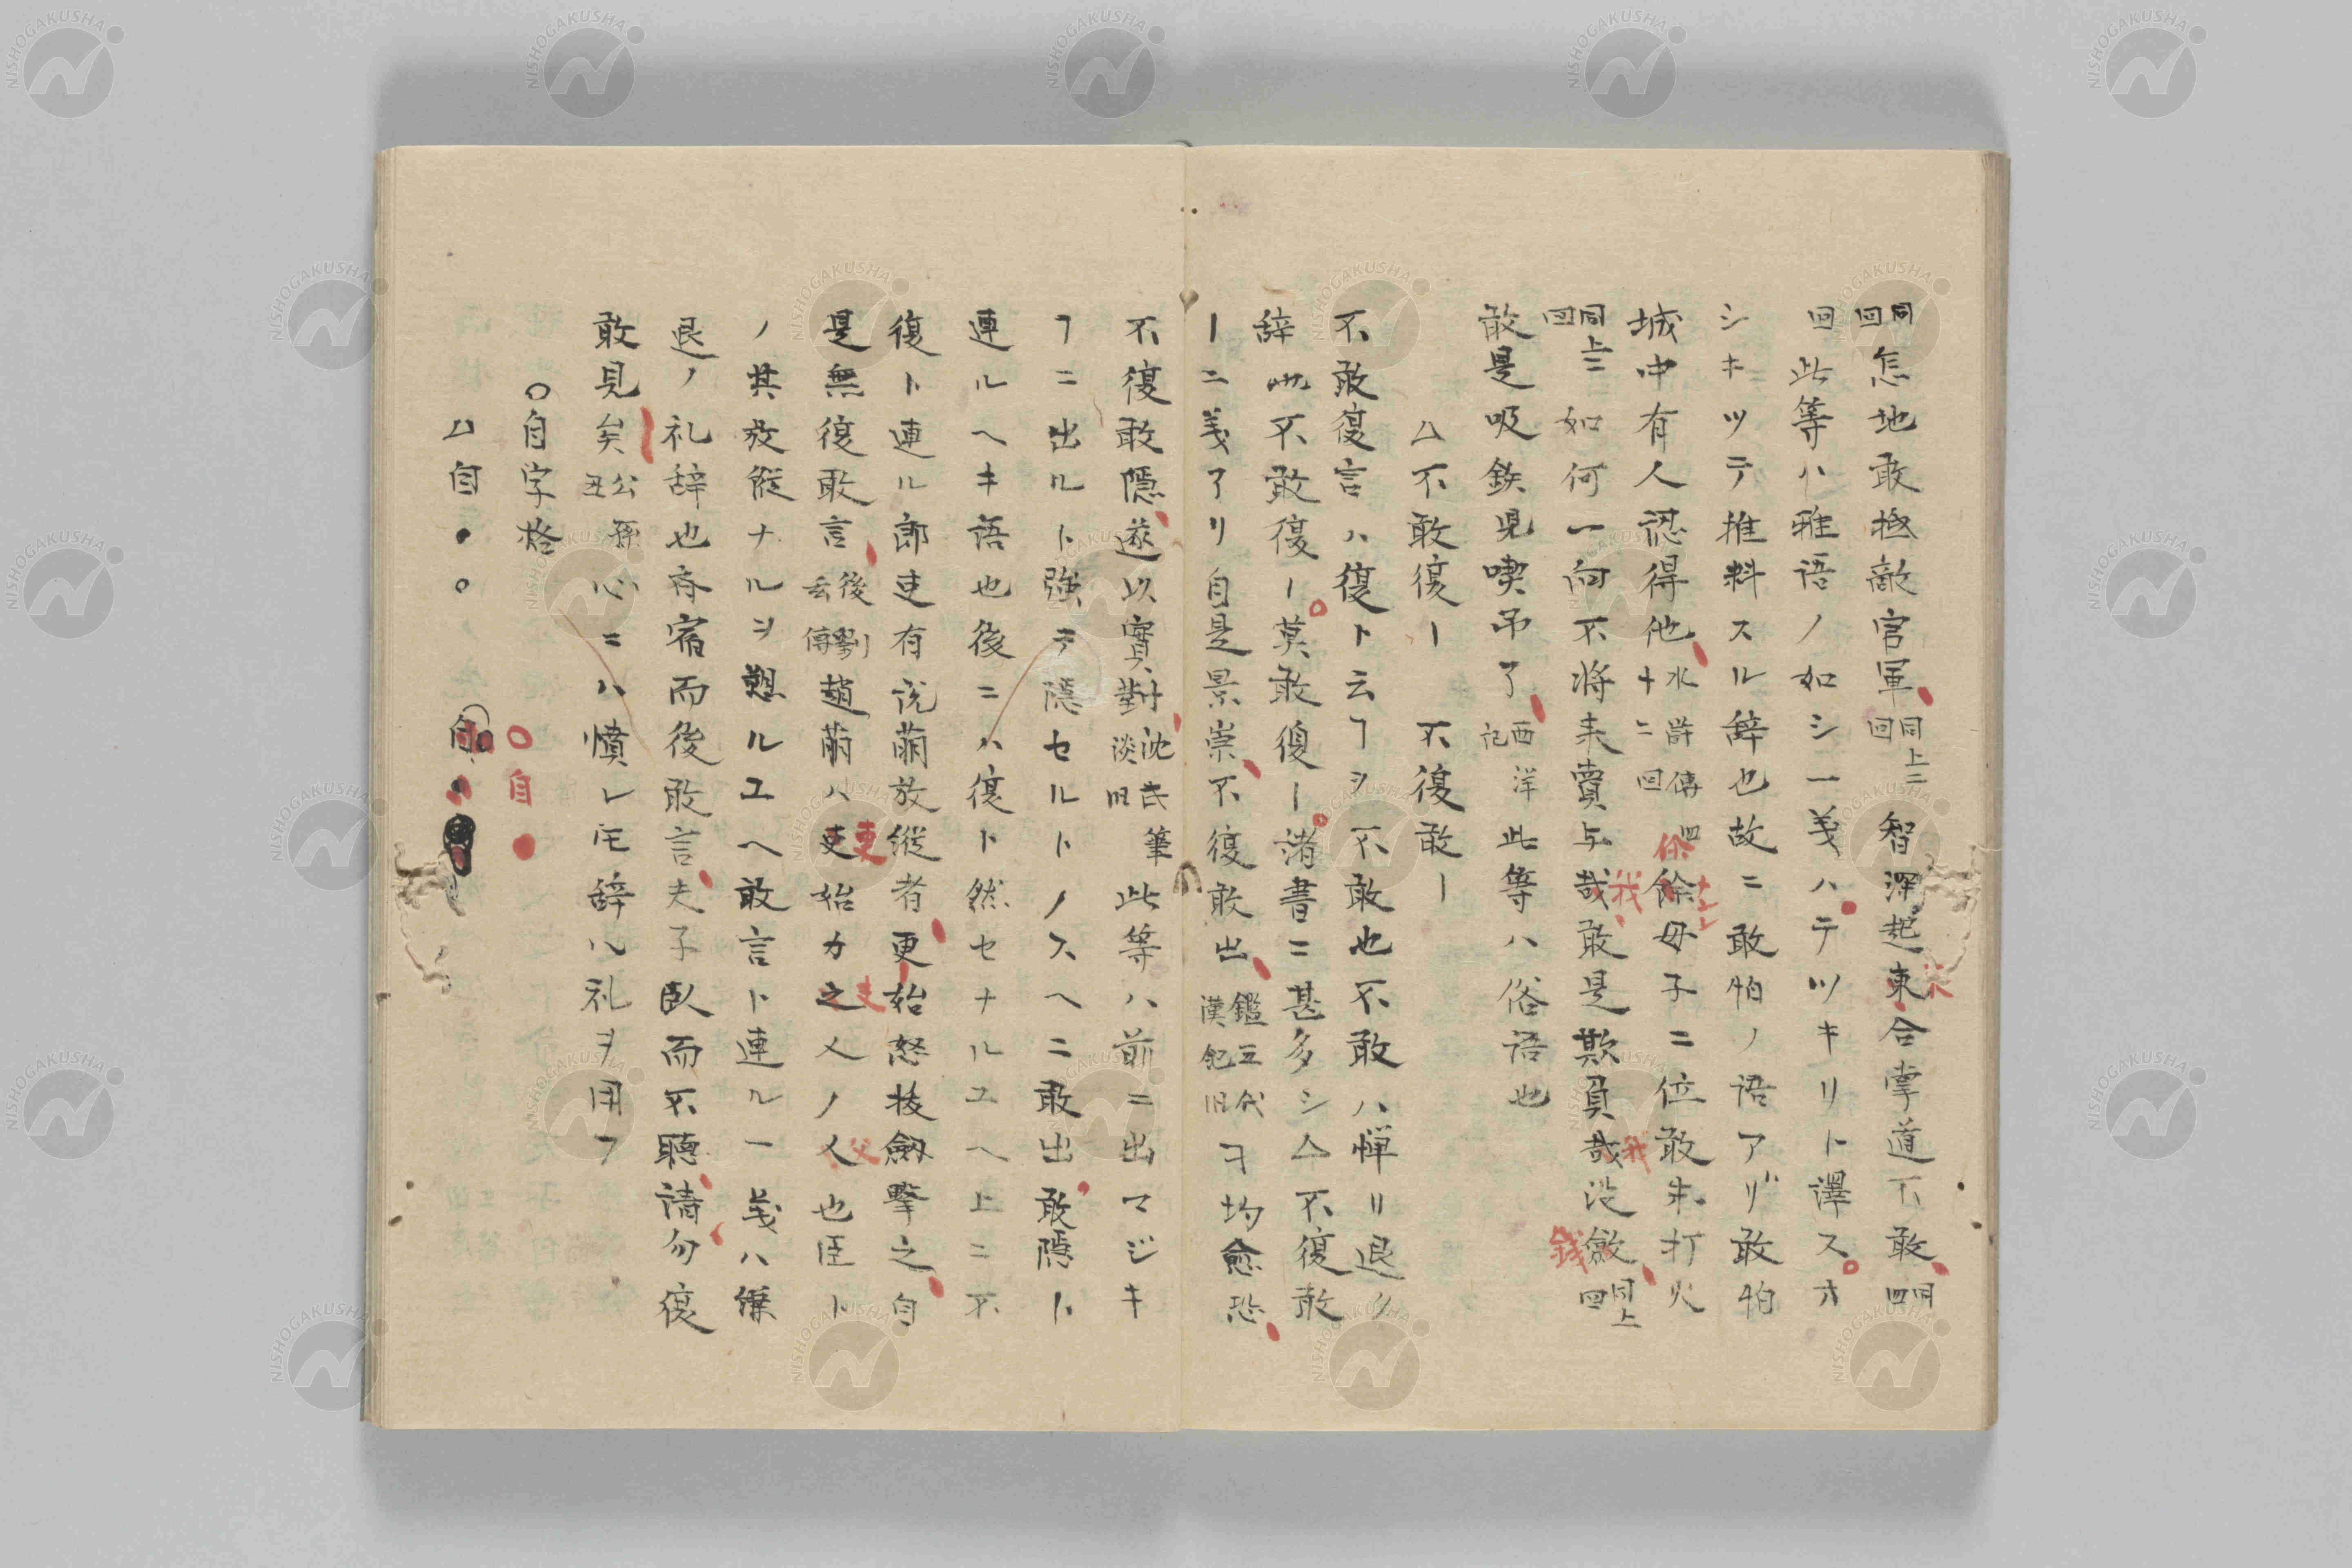 同回怎地敢抵敵官軍同上二回智深起来合掌道不敢同四
回此等ハ雅語ノ如シ一義ハテツキリト譯スオ
シキツテ推料スル辞也故ニ敢怕ノ語アリ敢怕
城中有人認得他水滸傳四十二回餘母子二位敢未打火
同上二回如何一向不将来賣与哉我敢是欺負哉我没斂錢同上四
敢是吸鉄児喫吊了西洋記此等ハ俗語也
△不敢復｜不復敢｜
不敢復言ハ復ト云フヲ不敢也不敢ハ憚リ退ク
辞也不敢復｜莫敢復｜諸書ニ甚多シ△不復敢
｜ニ義アリ自是景崇不復敢出鑑五代漢紀旧ヿ均愈恐
不復敢隠遂以實對沈氏筆淡旧此等ハ前ニ出マジキ
ヿニ出ルト強テ隠セルトノスヘニ敢出敢隠ト
連ルヘキ語也後ニハ復ト然セナルユヘ上ニ不
復ト連ル郎吏有説萠放縦者更始怒抜劔撃之自
是無復敢言後劉玄傳趙萠ハ吏更始カ之吏人ノ人父也臣ト
ノ其放縦ナルヲ愬ルユヘ敢言ト連ル一義ハ憚
退ノ礼辞也斉宿而後敢言夫子臥而不聴請勿復
敢見矣公孫丑心ニハ憤レ𪜈辞ハ礼ヲ用フ
○自字格
△自・○
○自●